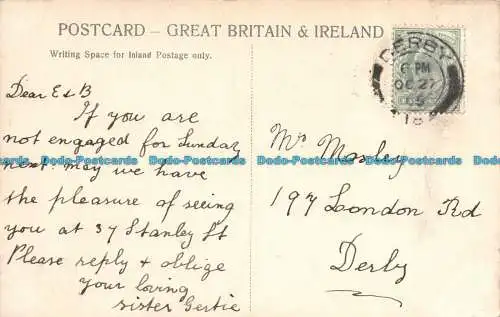 POSTCARD – GREAT BRITAIN & IRELAND
Writing Space for Inland Postage only.
DERBY
6 PM
OC 27
5
Dear E & B
If you are
not engaged for Sunday
next. may we have
the pleasure of seeing
you at 37 Stanley St
Please reply & oblige
your loving
sister Gertie
Mrs Maxley
197 London Rd
Derby
Dodo-Postcards Dodo-Postcards Dodo-Postcards Dodo-Postcards Dodo-Postcards